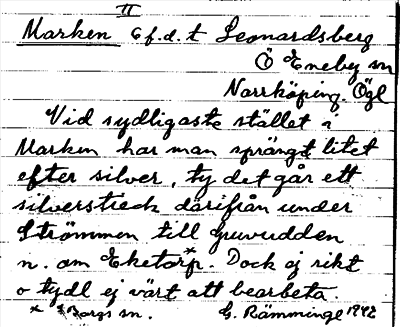 II
Marken E f.d. t Leonardsberg
Ö Eneby sn
Norrköping. Ögl
Vid sydligaste stället i
Marken har man sprängt litet
efter silver, ty det går ett
silverstreck därifrån under
Strömmen till Gruvudden
n. om Eketorp.* Dock ej rikt
o tydl ej värt att bearbeta
* i Borgs sn. G. Rämminge 1942